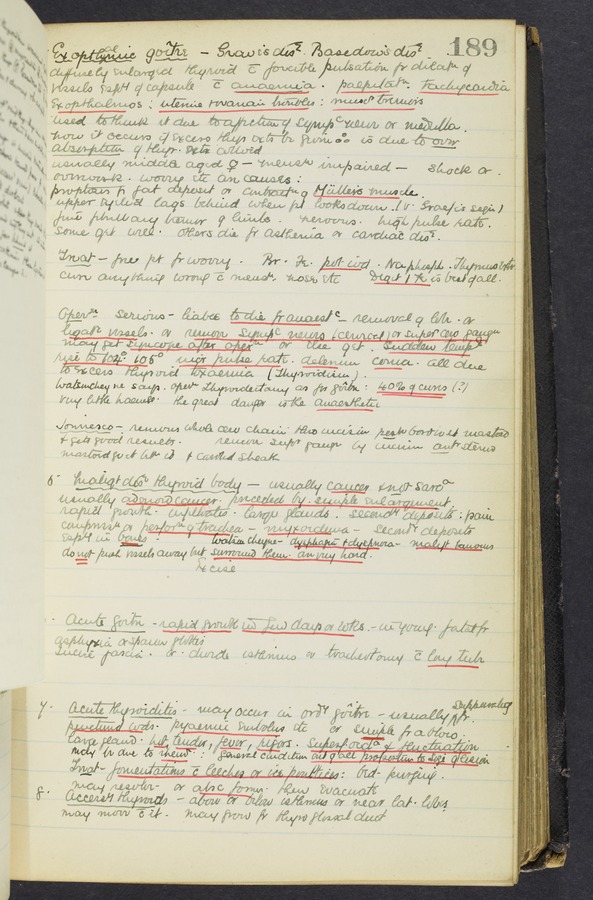 189
Exopthalmic goitre - Graves dis. Basedow's dis.
diffusely enlarged thyroid c̄ forcible pulsation fr dilatn of
vessels espy of capsule c̄ anaemia. palpitatn. tachycardia
Exopthalmos: uterine & ovarian troubles: musc tremors
used to think it due to affection of sympc nerve or medulla.
now it occurs if excess thyr extr be given is due to over
absorption of thyr. extr
usually middle aged ♀ - menstn impaired - shock or
overwork. worry etc as causes:
proptosis fr fat deposit or contractn of Müller's muscle.
upper eyelid lags behind when pt looks down. (V. Graefe's sign)
fine fibrillary tremor of limbs. nervous. high pulse rate.
some get well. others die fr asthenia or cardiac dis.
Treat - free pt fr worry. Br. Fe. pot iod. Na phosph. Thymus extr
cure anything wrong c̄ menstn nose etc Digit & Fe is best of all.
Opern serious - liable to die fr anaesthc - removal of lobe or
ligatn vessels. or remove sympc nerves (cervical) or super cerv gangn
may get syncope after opern or die qct. sudden tempe
rise to 104° 106° incr pulse rate. delerium coma. all due
to excess thyroid toxaemia (Thyroidism).
Watson cheyne says. opern Thyroidectomy as for goitre: 40% of cures (?)
very little haemorr. the great danger is the anaesthetic
Jonnesco - removes whole cerv chain thro incision postr border st mastoid
& gets good results. remove supr gangn by incision antr sterno
mastoid go it betw it & carotid sheath
6. Maligt dis. Thyroid body - usually cancer & not sarca
usually adenoid cancer. preceded by simple enlargement.
rapid growth. large glands. secondy deposits: pain
compressn or perforn of trachea - myxoedema - secondy deposits
espy in bones. Watson cheyne - dysphagia & dyspnoea - maligt tumours
do not push vessels away but surround them. are very hard.
Excise
Acute Goitre - rapid growth in few days or wks. - in young. fatal fr
asphyxia or spasm glottis
incise fascia. or divide isthmus or tracheotomy c̄ long tube
7. Acute Thyroiditis - may occur in ordy goitre - usually suppurating fr.
punctured wds. pyaemic embolus etc or simple fr a blow.
large gland. hot, tender, fever, rigors. Superficial & fluctuation
may be due to rheum: general condition out of all proportion to size of lesion
Treat - fomentations c̄ leeches or ice poultices: bid purging.
may resolve. or absc forms then evacuate
8. Accessy Thyroids - above or below isthmus or near lat. lobes
may move c̄ it. may grow fr thyro glossal duct